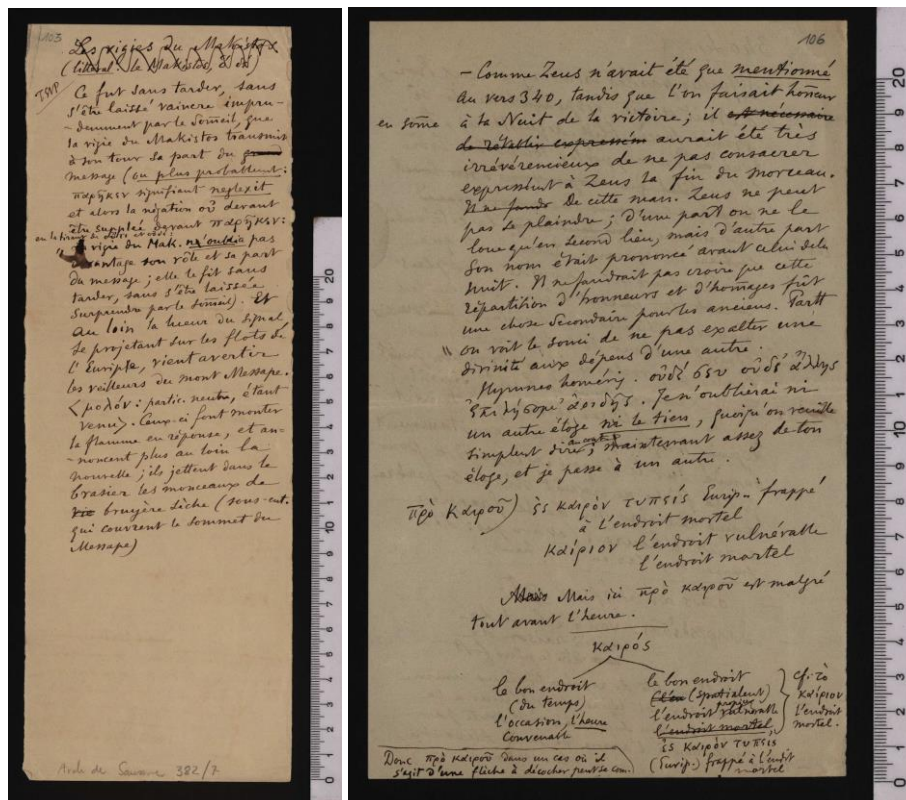 103
Les vigies du Makistos
(littéral. le Makistos, ὁ δὲ)
TSVP
Ce fut sans tarder, sans
s'être laissé vaincre impru-
-demment par le sommeil, que
la vigie du Makistos transmit
à son tour sa part du
message (ou plus probablement:
παρῆκεν signifiant neglexit
et alors la négation οὐ devant
être suppléée devant παρῆκεν:
vigie du Mak. n'oublia pas
davantage son rôle et sa part
du message; elle le fit sans
tarder, sans s'être laissée
surprendre par le sommeil). Et
au loin la lueur du signal
se projetant sur les flots de
l'Euripe, vient avertir
les veilleurs du mont Messape.
<μολόν: partic. neutre, étant
venu>. Ceux-ci font monter
la flamme en réponse, et an-
-noncent plus au loin la
nouvelle; ils jettent dans le
brasier les monceaux de
bruyère sèche (sous-ent.
qui couvrent le sommet du
Messape)
Arch. de Saussure 382/7
106
- Comme Zeus n'avait été que mentionné
au vers 340, tandis que l'on faisait honneur
en somme
à la Nuit de la victoire; il est nécessaire
de rétablir expressém aurait été très
irrévérencieux de ne pas consacrer
expressémt à Zeus la fin du morceau.
Il ne faudr De cette man. Zeus ne peut
pas se plaindre; d'une part on ne le
loue qu'en second lieu, mais d'autre part
son nom était prononcé avant celui de la
nuit. Il ne faudrait pas croire que cette
répartition d'honneurs et d'homages fût
une chose secondaire pour les anciens. Partt
on voit le souci de ne pas exalter une
divinité aux dépens d'une autre.
Hymnes homériq. οὐδὲ σευ οὐδ' ἄλλης
ἐπιλήσομ' ἀοιδῆς. Je n'oublierai ni
un autre éloge ni le tien, quoiqu'on veuille
simplemt dire; maintenant assez de ton
éloge, et je passe à un autre.
πρὸ καιροῦ) ἐς καιρὸν τυπείς Eurip. - frappé
à l'endroit mortel
καίριον l'endroit vulnérable
l'endroit mortel
Mais Mais ici πρὸ καιροῦ est malgré
tout avant l'heure.
καιρός
le bon endroit
(du temps)
l'occasion, l'heure
convenable
le bon endroit
(spatialemt)
l'endroit vulnérable
l'endroit mortel
ἐς καιρὸν τυπείς
(Eurip.) frappé à l'endrt
mortel
cf. τὸ
καίριον
l'endroit
mortel.
Donc πρὸ καιροῦ dans un cas où il
s'agit d'une flèche à décocher peut se com.